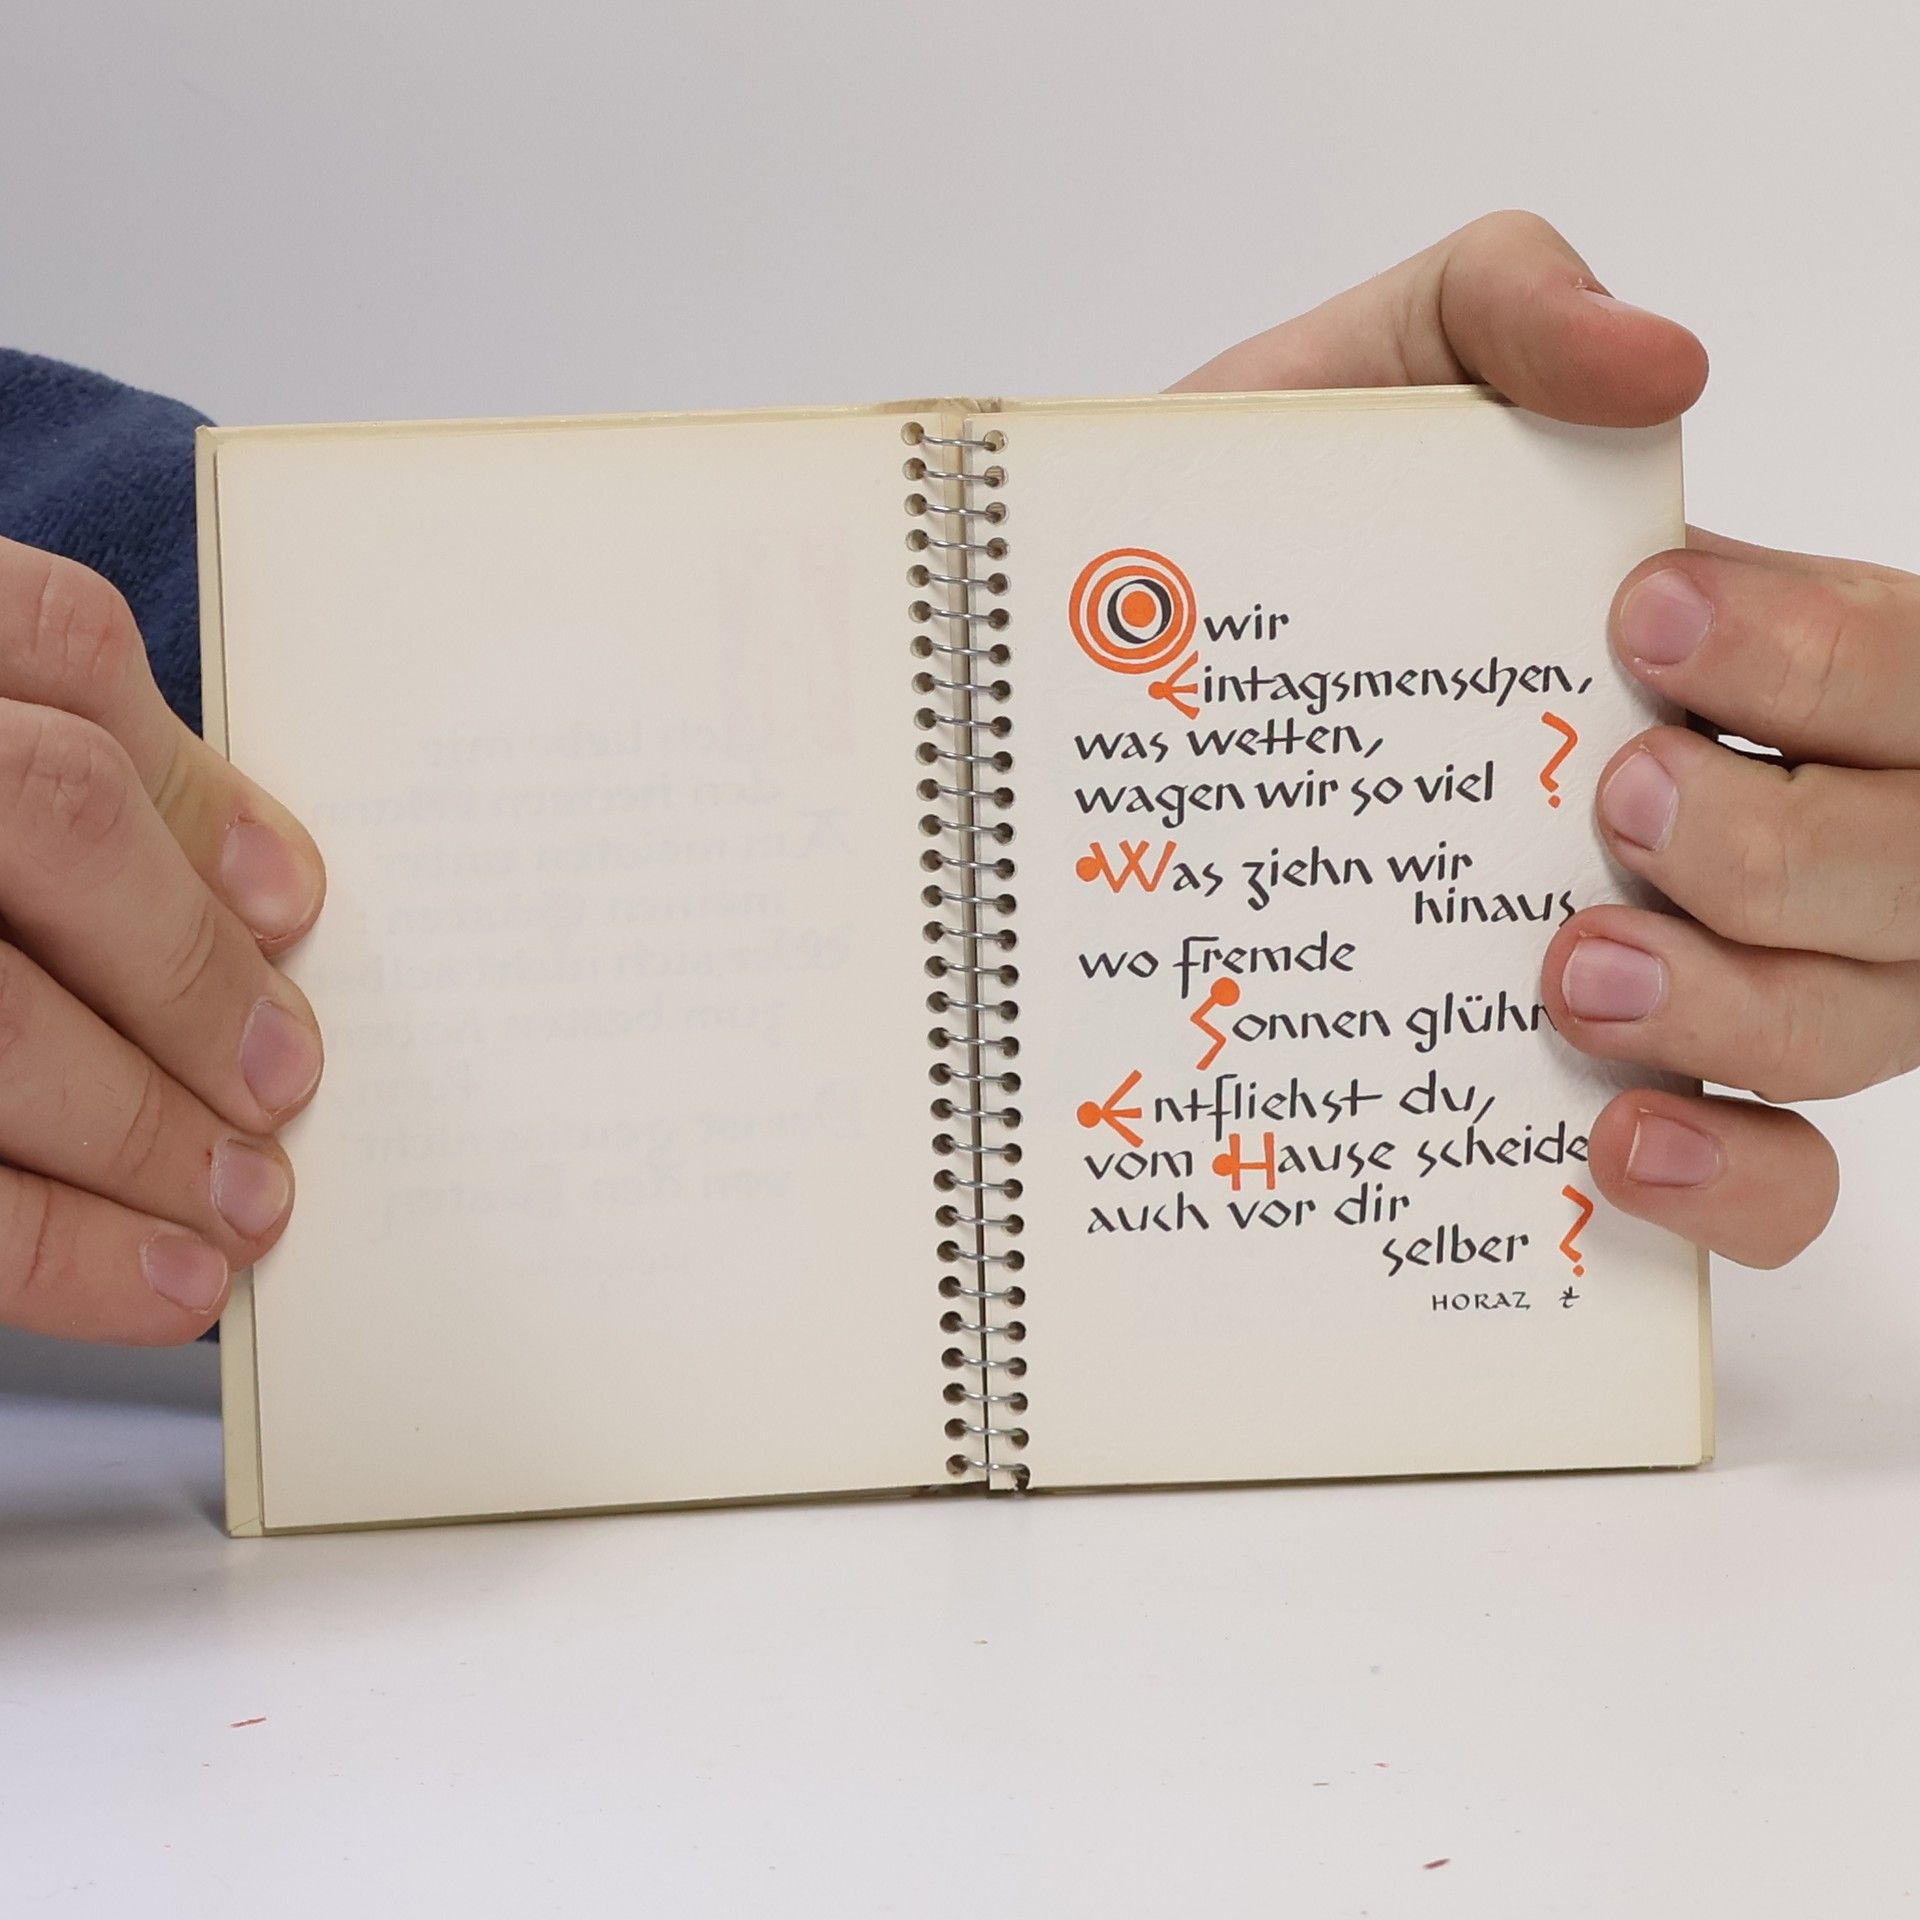 O wir
Eintagsmenschen,
was wetten,
wagen wir so viel ?
Was ziehn wir
hinaus
wo fremde
Sonnen glühn
Entfliehst du,
vom Hause scheide
auch vor dir
selber ?
HORAZ